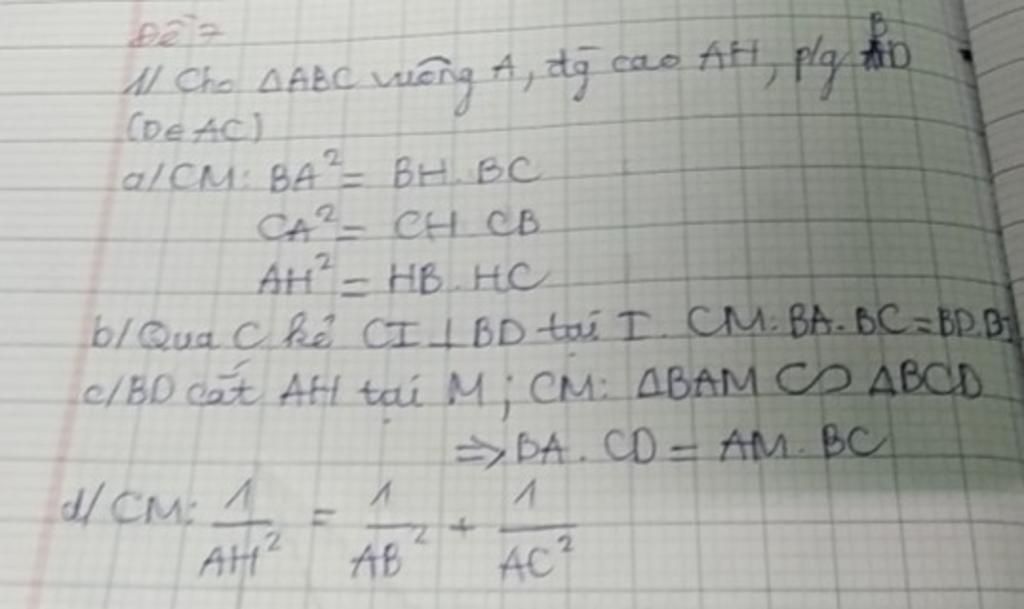 Đề 7
1/ Cho ΔABC vuông A, đg̅ cao AH, p/g BD
(D∈AC)
a/ CM: BA² = BH.BC
CA² = CH.CB
AH² = HB.HC
b/ Qua C kẻ CI⊥BD tại I. CM: BA.BC=BD.BI
c/ BD cắt AH tại M; CM: ΔBAM ∽ ΔBCD
⇒ BA.CD = AM.BC
d/ CM: 1/AH² = 1/AB² + 1/AC²